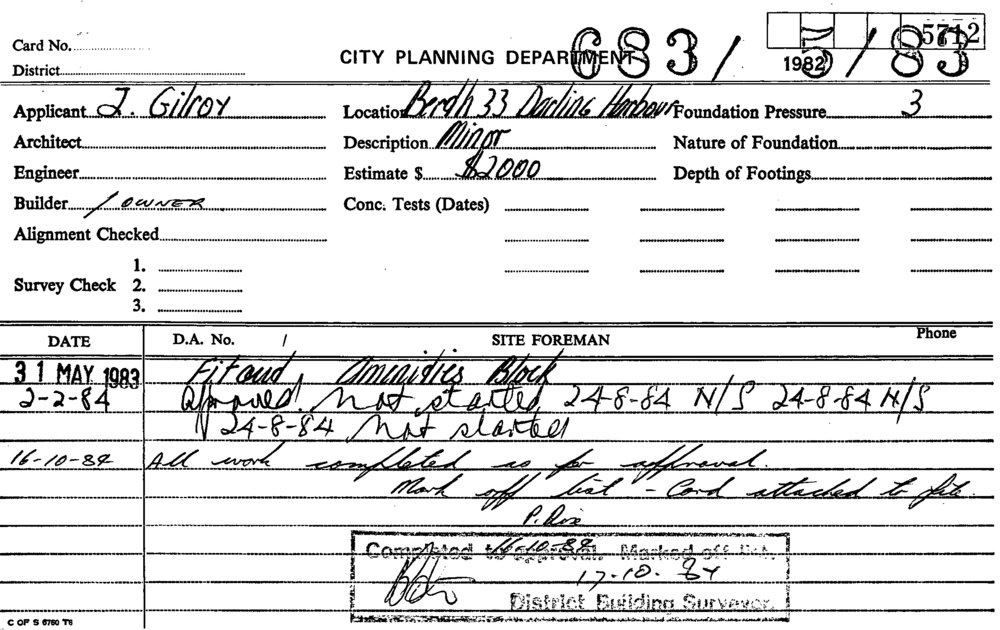 5712
Card No.
CITY PLANNING DEPARTMENT 683/5/83
1982
District
Applicant J. Gilroy Location Berth 33 Darling Harbour Foundation Pressure 3
Architect Description Minor Nature of Foundation
Engineer Estimate $ $2000 Depth of Footings
Builder / OWNER Conc. Tests (Dates)
Alignment Checked
1.
Survey Check 2.
3.
DATE D.A. No. / SITE FOREMAN Phone
31 MAY 1983 Fitout Amenities Block
2-2-84 Approved. Not started 24-8-84 N/S 24-8-84 N/S
24-8-84 Not started
16-10-84 All work completed as per approval.
Mark off list - Card attached to file.
P. Dix
16-10-84
Completed to approval. Marked off list.
17-10-84
District Building Surveyor.
C OF S 6760 T6